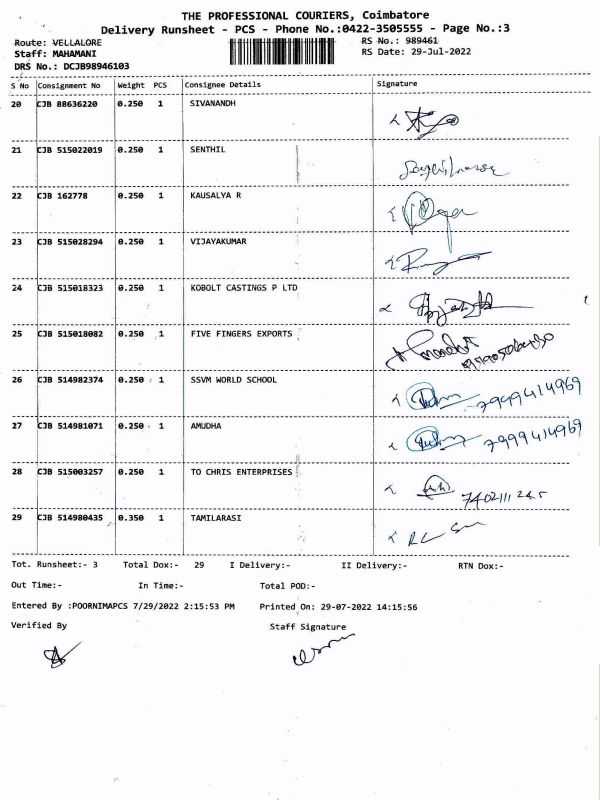 THE PROFESSIONAL COURIERS, Coimbatore
Delivery Runsheet - PCS - Phone No.:0422-3505555 - Page No.:3
Route: VELLALORE RS No.: 989461
Staff: MAHAMANI RS Date: 29-Jul-2022
DRS No.: DCJB98946103
S No Consignment No Weight PCS Consignee Details Signature
20 CJB 88636220 0.250 1 SIVANANDH
21 CJB 515022019 0.250 1 SENTHIL
22 CJB 162778 0.250 1 KAUSALYA R
23 CJB 515028294 0.250 1 VIJAYAKUMAR
24 CJB 515018323 0.250 1 KOBOLT CASTINGS P LTD
25 CJB 515018082 0.250 1 FIVE FINGERS EXPORTS
26 CJB 514982374 0.250 1 SSVM WORLD SCHOOL 7999414969
27 CJB 514981071 0.250 1 AMUDHA 7999414969
28 CJB 515003257 0.250 1 TO CHRIS ENTERPRISES
29 CJB 514980435 0.350 1 TAMILARASI
Tot. Runsheet:- 3 Total Dox:- 29 I Delivery:- II Delivery:- RTN Dox:-
Out Time:- In Time:- Total POD:-
Entered By :POORNIMAPCS 7/29/2022 2:15:53 PM Printed On: 29-07-2022 14:15:56
Verified By Staff Signature